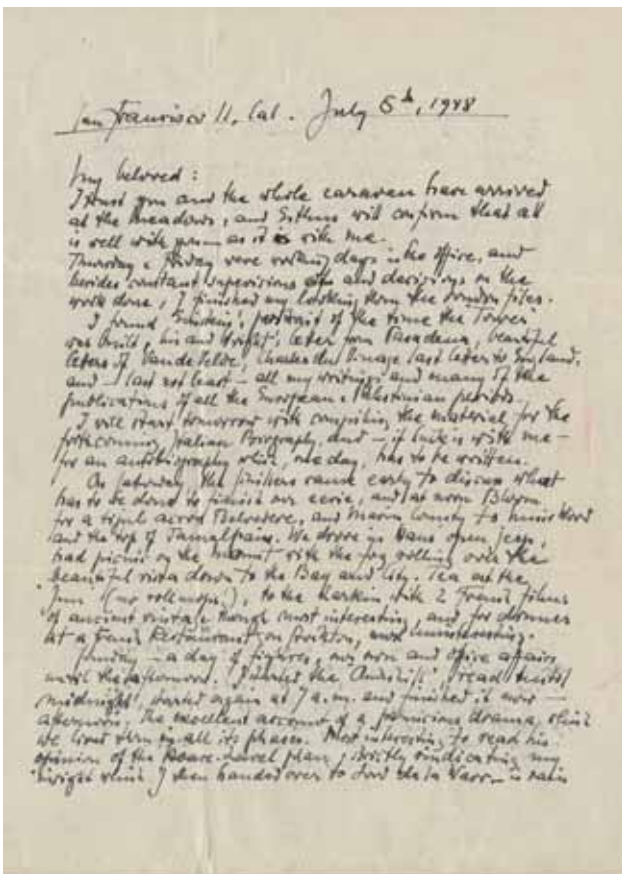 San Francisco 11, Cal. July 5th, 1948
My beloved:
I trust you and the whole caravan have arrived
at the meadows, and Esther will confirm that all
is well with you — as it is with me.
Thursday & Friday were working days in the office, and
besides constant supervisions and decisions on the
work done, I finished my looking thru the London files.
I found Einstein's portrait of the time the Tower
was built, his and Wright's letter from Pasadena, beautiful
letters of Van de Velde, Charles du Vinage last letters to England,
and — last not least — all my writings and many of the
publications of all the European & Palestinian periods.
I will start tomorrow with compiling the material for the
forthcoming Italian Biography and — if luck is with me —
for an autobiography which, one day, has to be written.
On Saturday the finishers came early to discuss what
has to be done to finish our eerie, and at noon Bloom
for a tour across Belvedere, and Marin County to Muir Wood
and the top of Tamalpais. We drove in Hans open jeep,
had picnic on the Mount with the fog rolling over the
beautiful vista down to the Bay and City. Tea at the
Inn (no rollmops!), to the Larkin with 2 French films
of ancient vintage though most interesting, and for dinner
at a French Restaurant on Stockton, more uninteresting.
Sunday — a day of figures, our own and office affairs
until the afternoon. I started the read until
midnight, started again at 7 a.m. and finished it now —
afternoon. The excellent account of a pernicious drama, which
we lived thru in all its phases. Most interesting to read his
opinion of the plan, strictly vindicating my
insight which I then handed over to Lord de la Warr — in vain